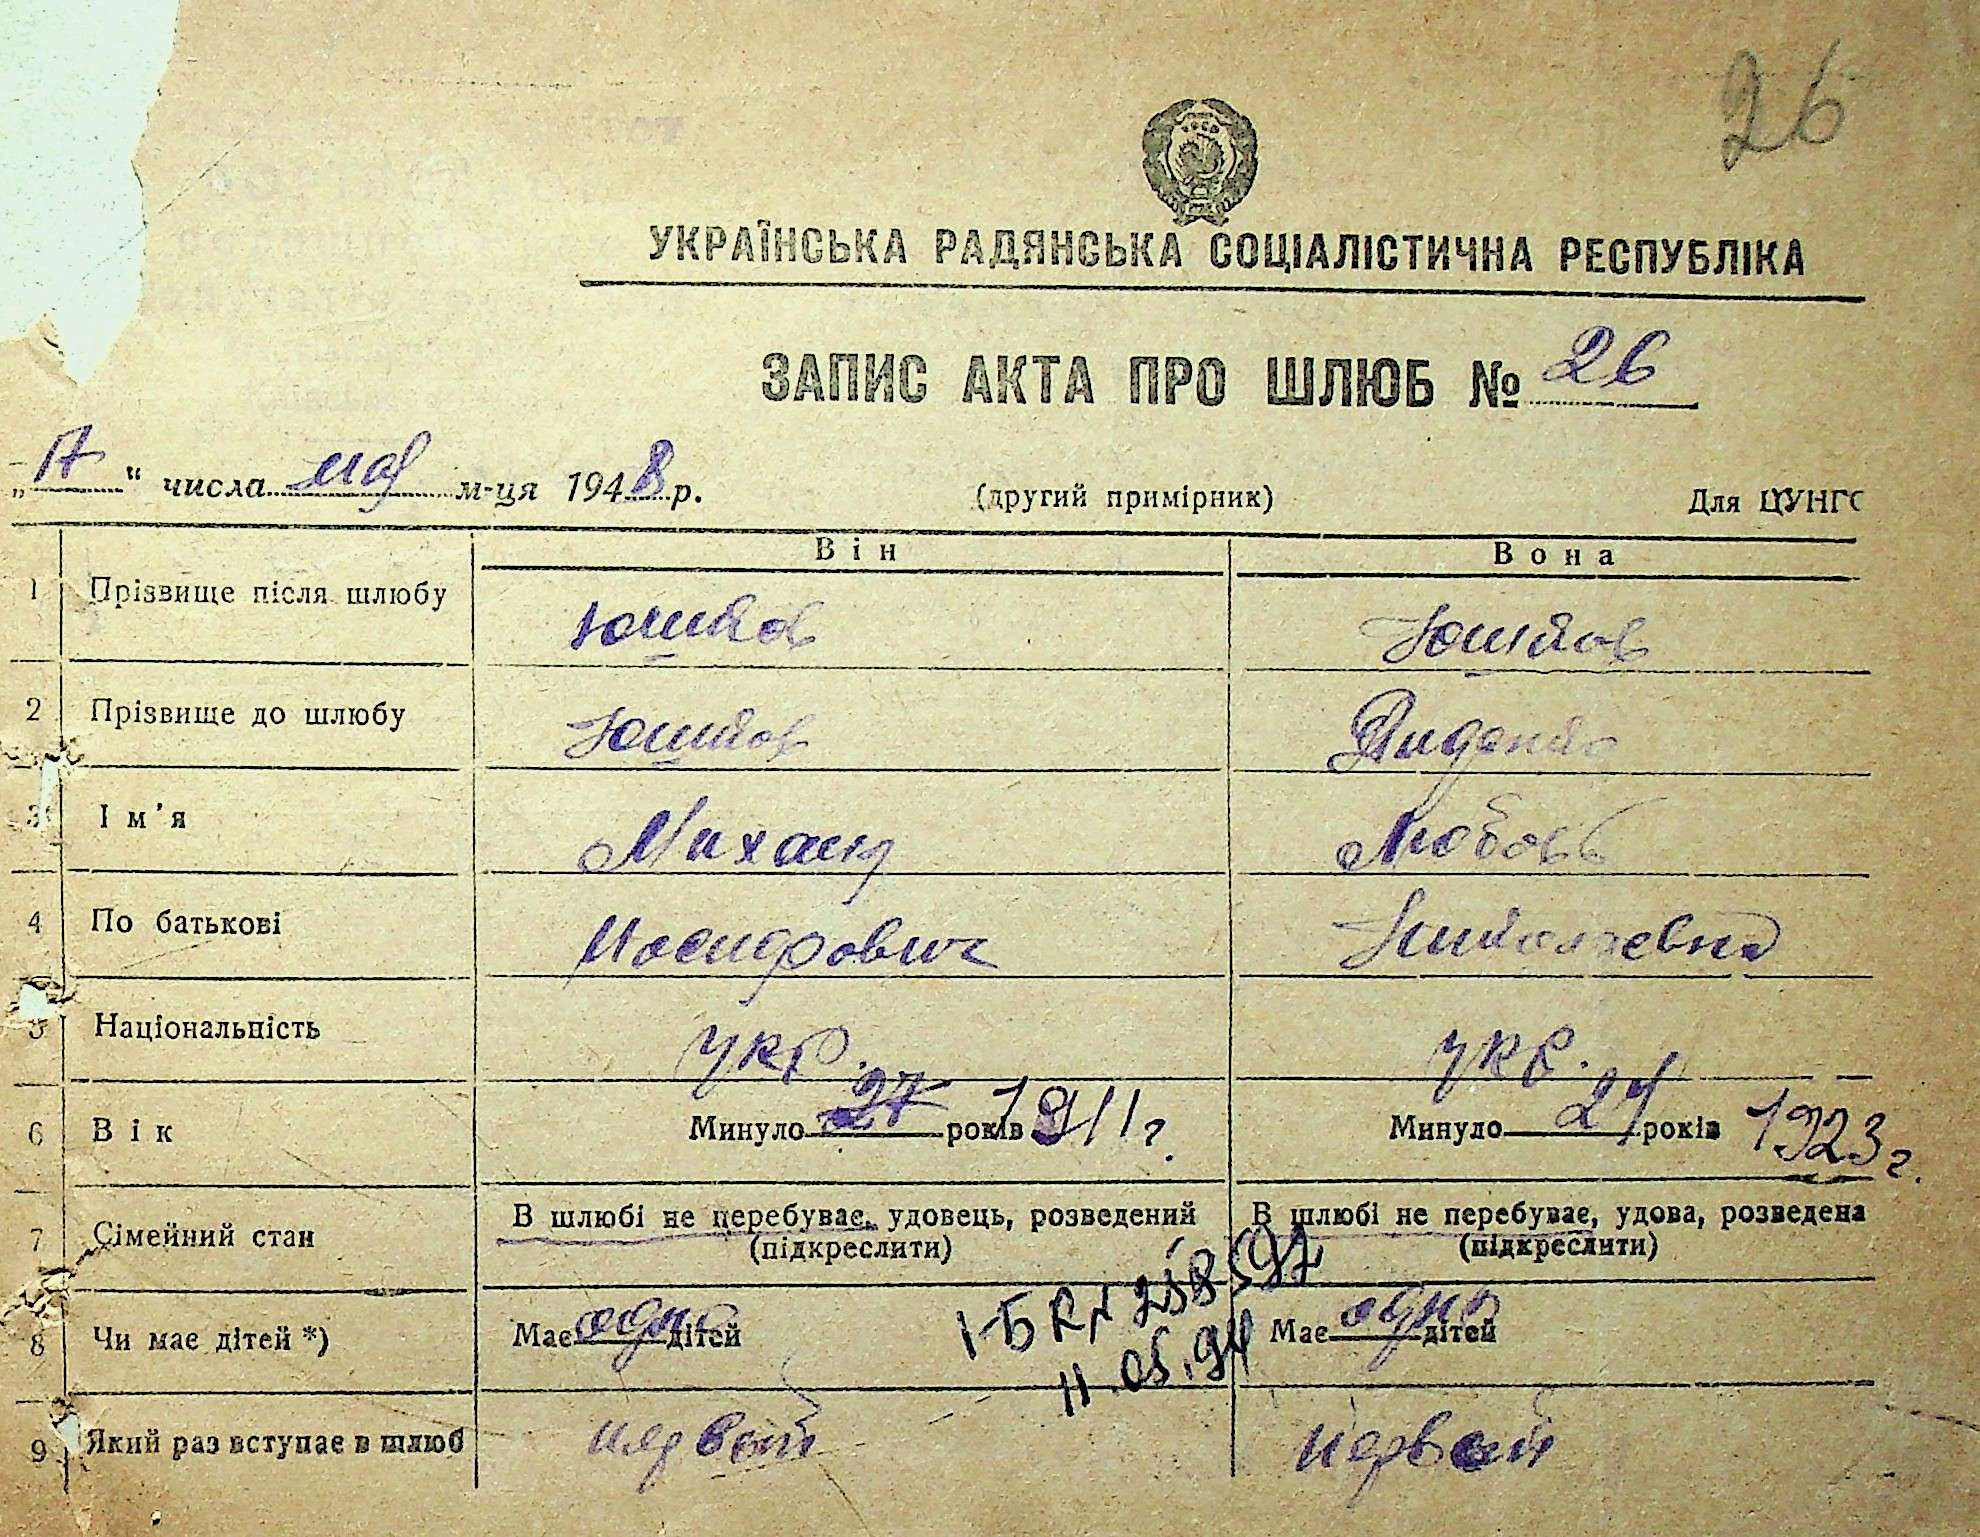 26
УКРАЇНСЬКА РАДЯНСЬКА СОЦІАЛІСТИЧНА РЕСПУБЛІКА
ЗАПИС АКТА ПРО ШЛЮБ № 26
„17“ числа мая м-ця 1948 р. (другий примірник) Для ЦУНГО
Він Вона
1 Прізвище після шлюбу Юшков Юшков
2 Прізвище до шлюбу Юшков Диденко
3 Ім'я Михаил Любовь
4 По батькові Иосифович Николаевна
5 Національність укр. укр.
6 Вік Минуло 27 років 1911 г. Минуло 24 років 1923 г.
7 Сімейний стан В шлюбі не перебуває, удовець, розведений В шлюбі не перебуває, удова, розведена
(підкреслити) (підкреслити)
8 Чи має дітей *) Має одно дітей Має одно дітей
I-БК № 258597
11.05.94
9 Який раз вступає в шлюб первый первый